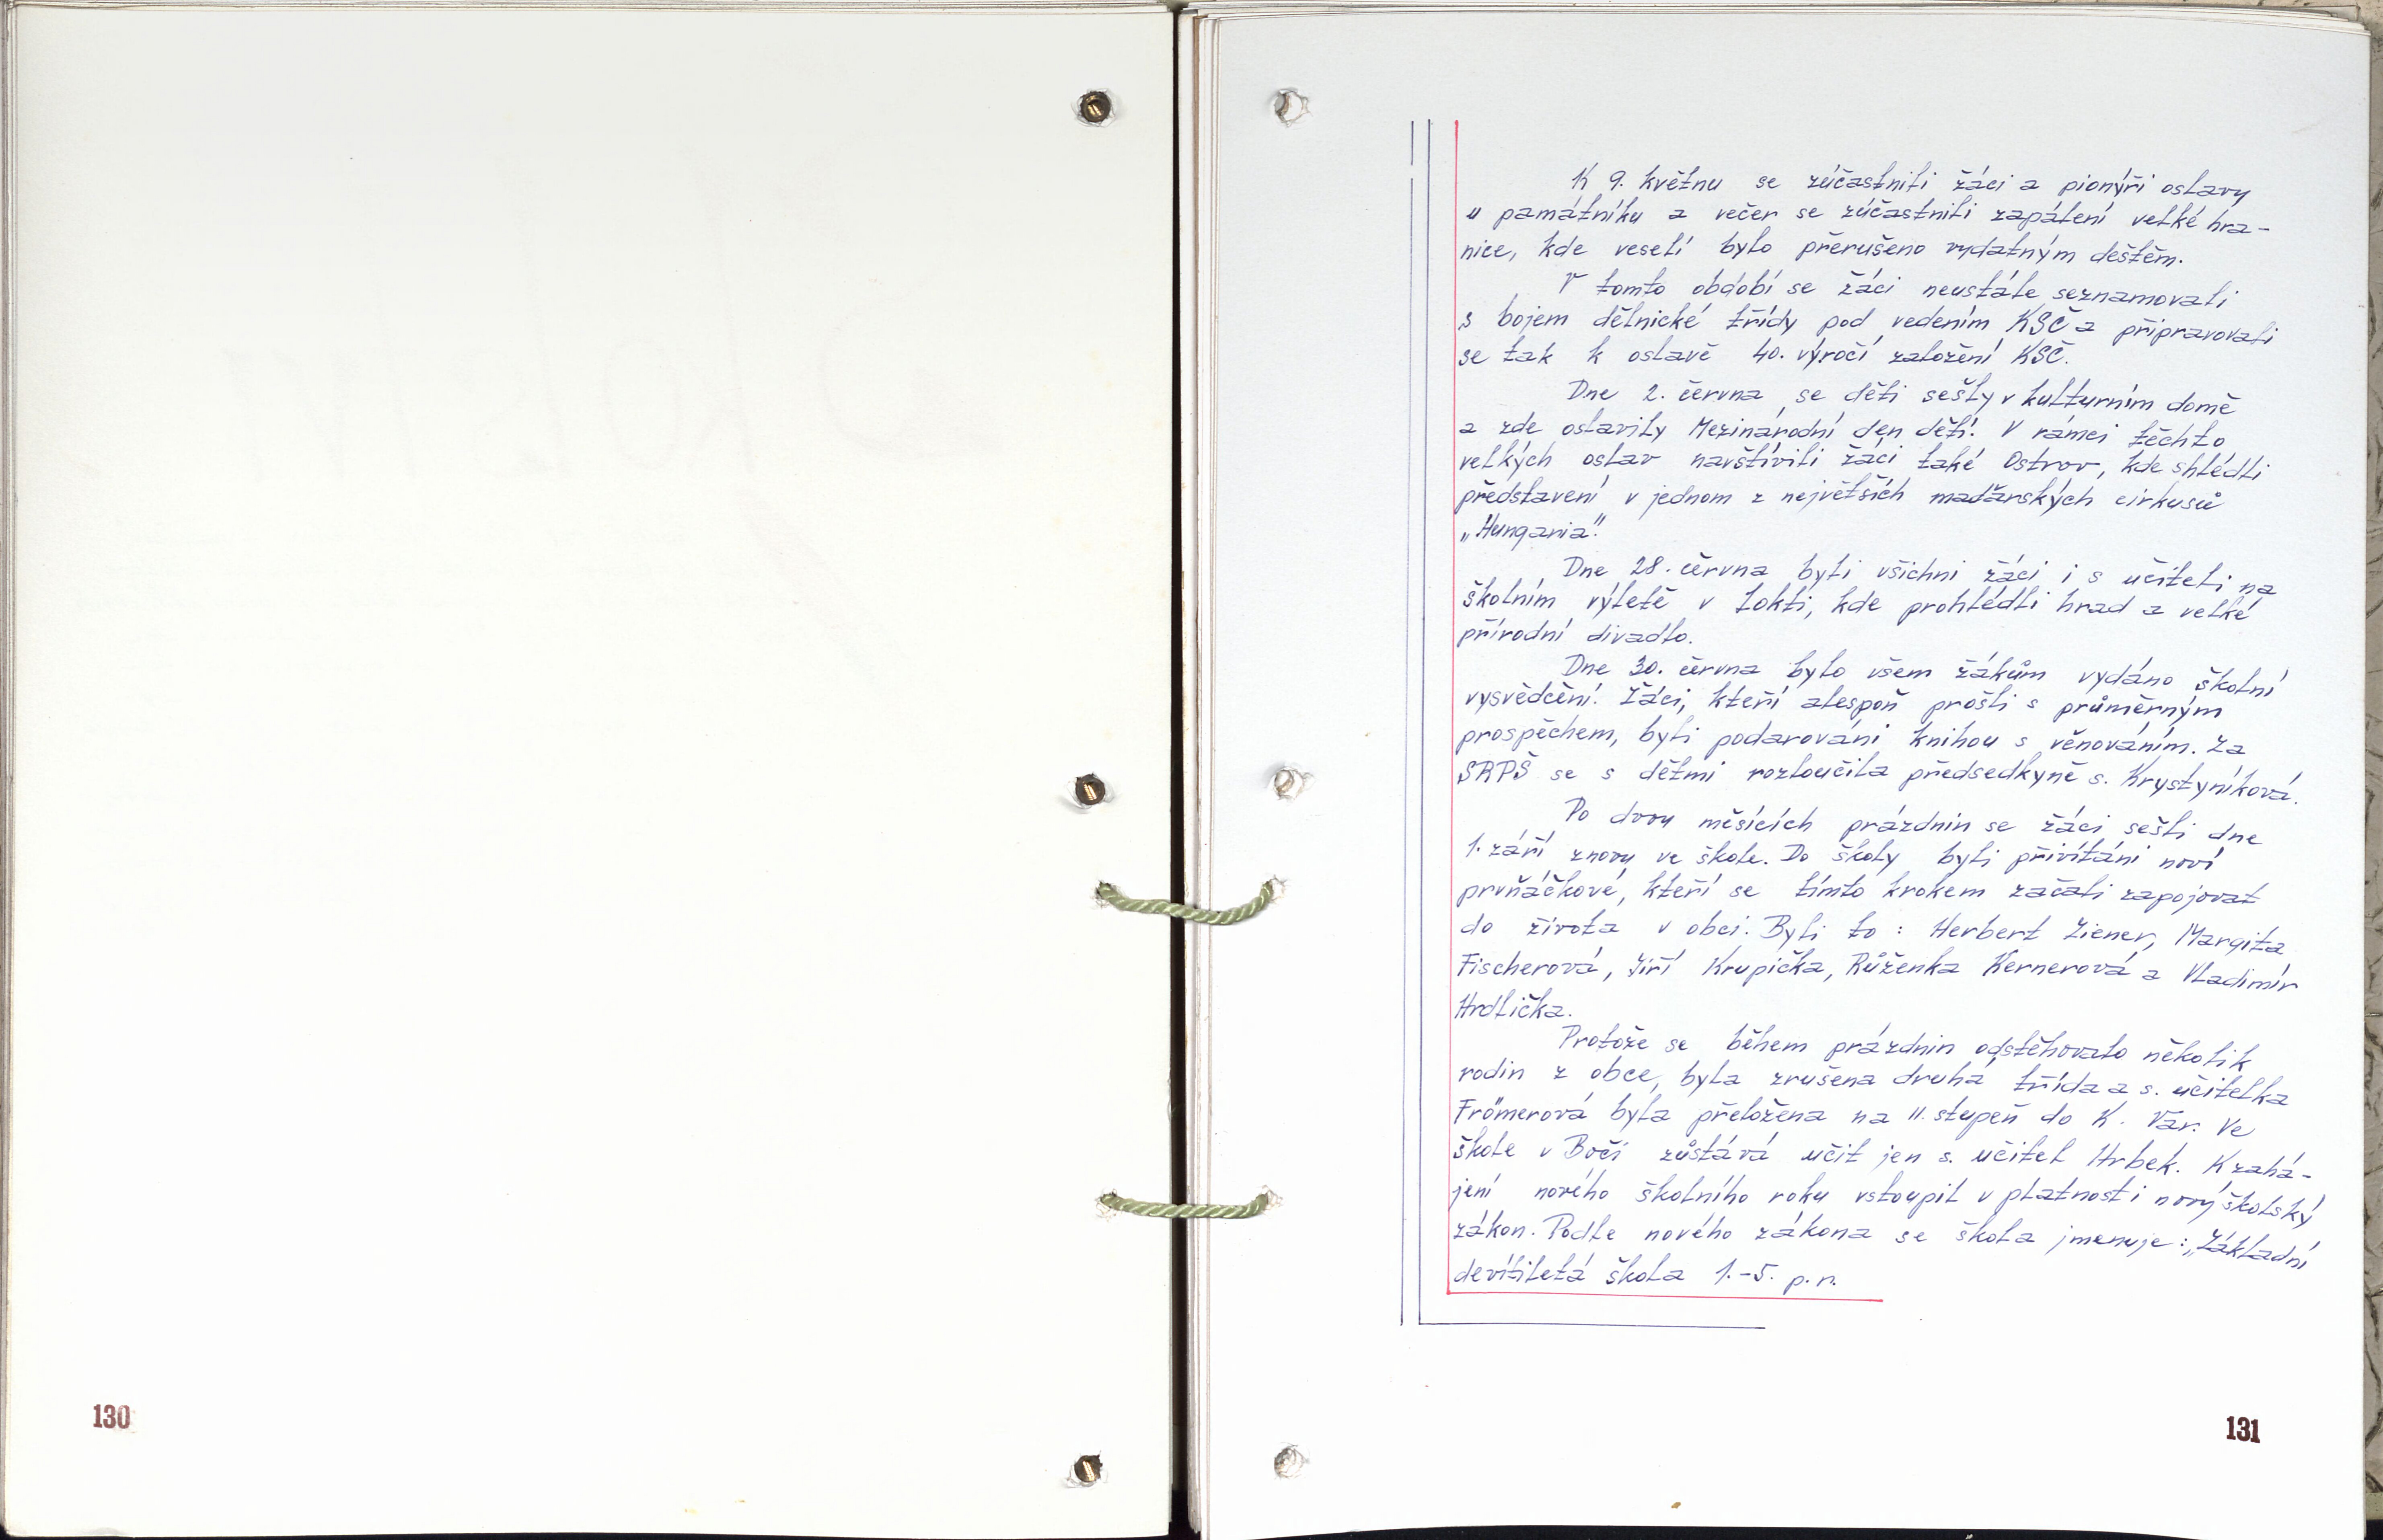 K 9. květnu se zúčastnili žáci a pionýři oslavy
u památníku a večer se zúčastnili zapálení velké hra-
nice, kde veselí bylo přerušeno vydatným deštěm.
V tomto období se žáci neustále seznamovali
s bojem dělnické třídy pod vedením KSČ a připravovali
se tak k oslavě 40. výročí založení KSČ.
Dne 2. června se děti sešly v kulturním domě
a zde oslavily Mezinárodní den dětí. V rámci těchto
velkých oslav navštívili žáci také Ostrov, kde shlédli
představení v jednom z největších maďarských cirkusů
„Hungaria".
Dne 28. června byli všichni žáci i s učiteli na
školním výletě v Lokti, kde prohlédli hrad a velké
přírodní divadlo.
Dne 30. června bylo všem žákům vydáno školní
vysvědčení. Žáci, kteří alespoň prošli s průměrným
prospěchem, byli podarováni knihou s věnováním. Za
SRPŠ se s dětmi rozloučila předsedkyně s. Krystyníková.
Po dvou měsících prázdnin se žáci sešli dne
1. září znovu ve škole. Do školy byli přivítáni noví
prvňáčkové, kteří se tímto krokem začali zapojovat
do života v obci. Byli to : Herbert Ziener, Margita
Fischerová, Jiří Krupička, Růženka Kernerová a Vladimír
Hrdlička.
Protože se během prázdnin odstěhovalo několik
rodin z obce, byla zrušena druhá třída a s. učitelka
Frömerová byla přeložena na II. stupeň do K. Var. Ve
škole v Boči zůstává učit jen s. učitel Hrbek. K zahá-
jení nového školního roku vstoupil v platnosti nový školský
zákon. Podle nového zákona se škola jmenuje: „Základní
devítiletá škola 1.-5. p.r.
130
131